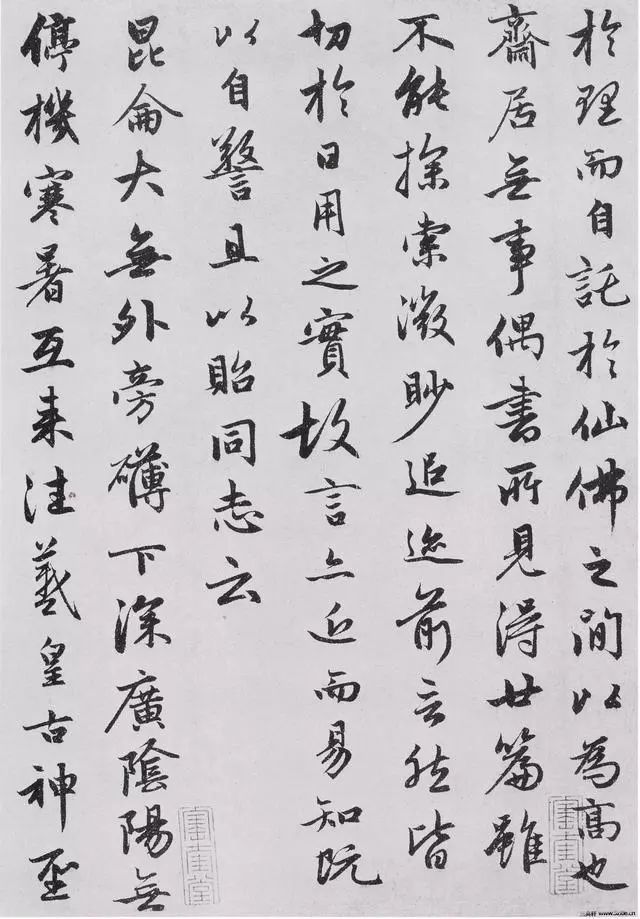 於理而自託於仙佛之間以為髙也
齋居無事偶書所見得廿篇雖
不能探索微眇追迹前言然皆
切於日用之實故言亦近而易知既
以自警且以貽同志云
昆侖大無外旁礴下深廣陰陽無
停機寒暑互来往羲皇古神聖